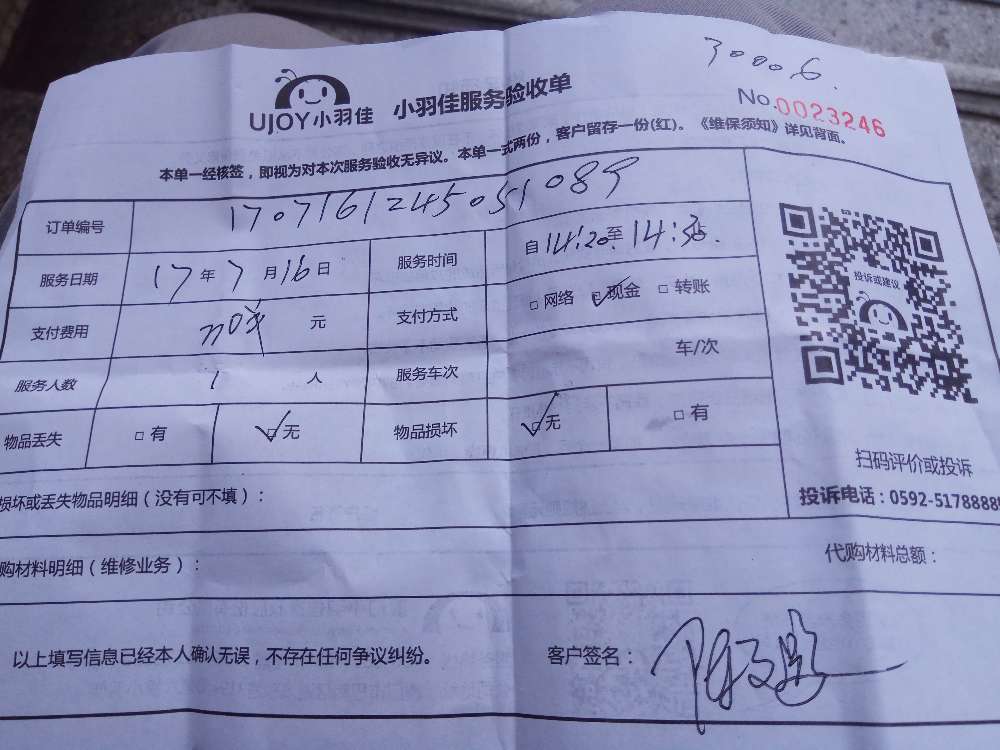 30006
UJOY小羽佳 小羽佳服务验收单
No.0023246
本单一经核签，即视为对本次服务验收无异议。本单一式两份，客户留存一份(红)。《维保须知》详见背面。
订单编号 1707161245051089
服务日期 17年7月16日 服务时间 自14:20至14:35
支付费用 元 支付方式 □网络 ☑现金 □转账
服务人数 1人 服务车次 车/次
物品丢失 □有 ☑无 物品损坏 ☑无 □有
投诉或建议
扫码评价或投诉
投诉电话：0592-5178888
损坏或丢失物品明细（没有可不填）：
购材料明细（维修业务）： 代购材料总额：
以上填写信息已经本人确认无误，不存在任何争议纠纷。 客户签名：